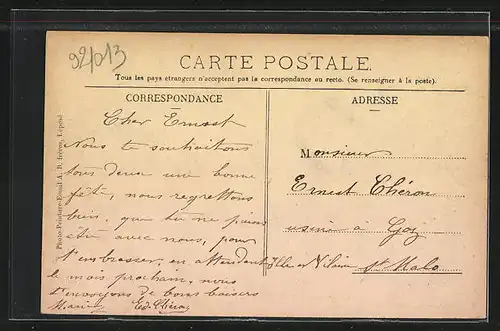 92/013
CARTE POSTALE.
Tous les pays étrangers n'acceptent pas la correspondance au recto. (Se renseigner à la poste).
CORRESPONDANCE
Cher Ernest
Nous te souhaitons
tous deux une bonne
fête, nous regrettons
bien, que tu ne puisses
être avec nous, pour
t'embrasser, en attendant
le mois prochain, nous
t'envoyons de bons baisers
ADRESSE
Monsieur
Ernest Chéron
usine à
Ille et Vilaine St Malo
Photo-Peinture-Émail A. B. frères,